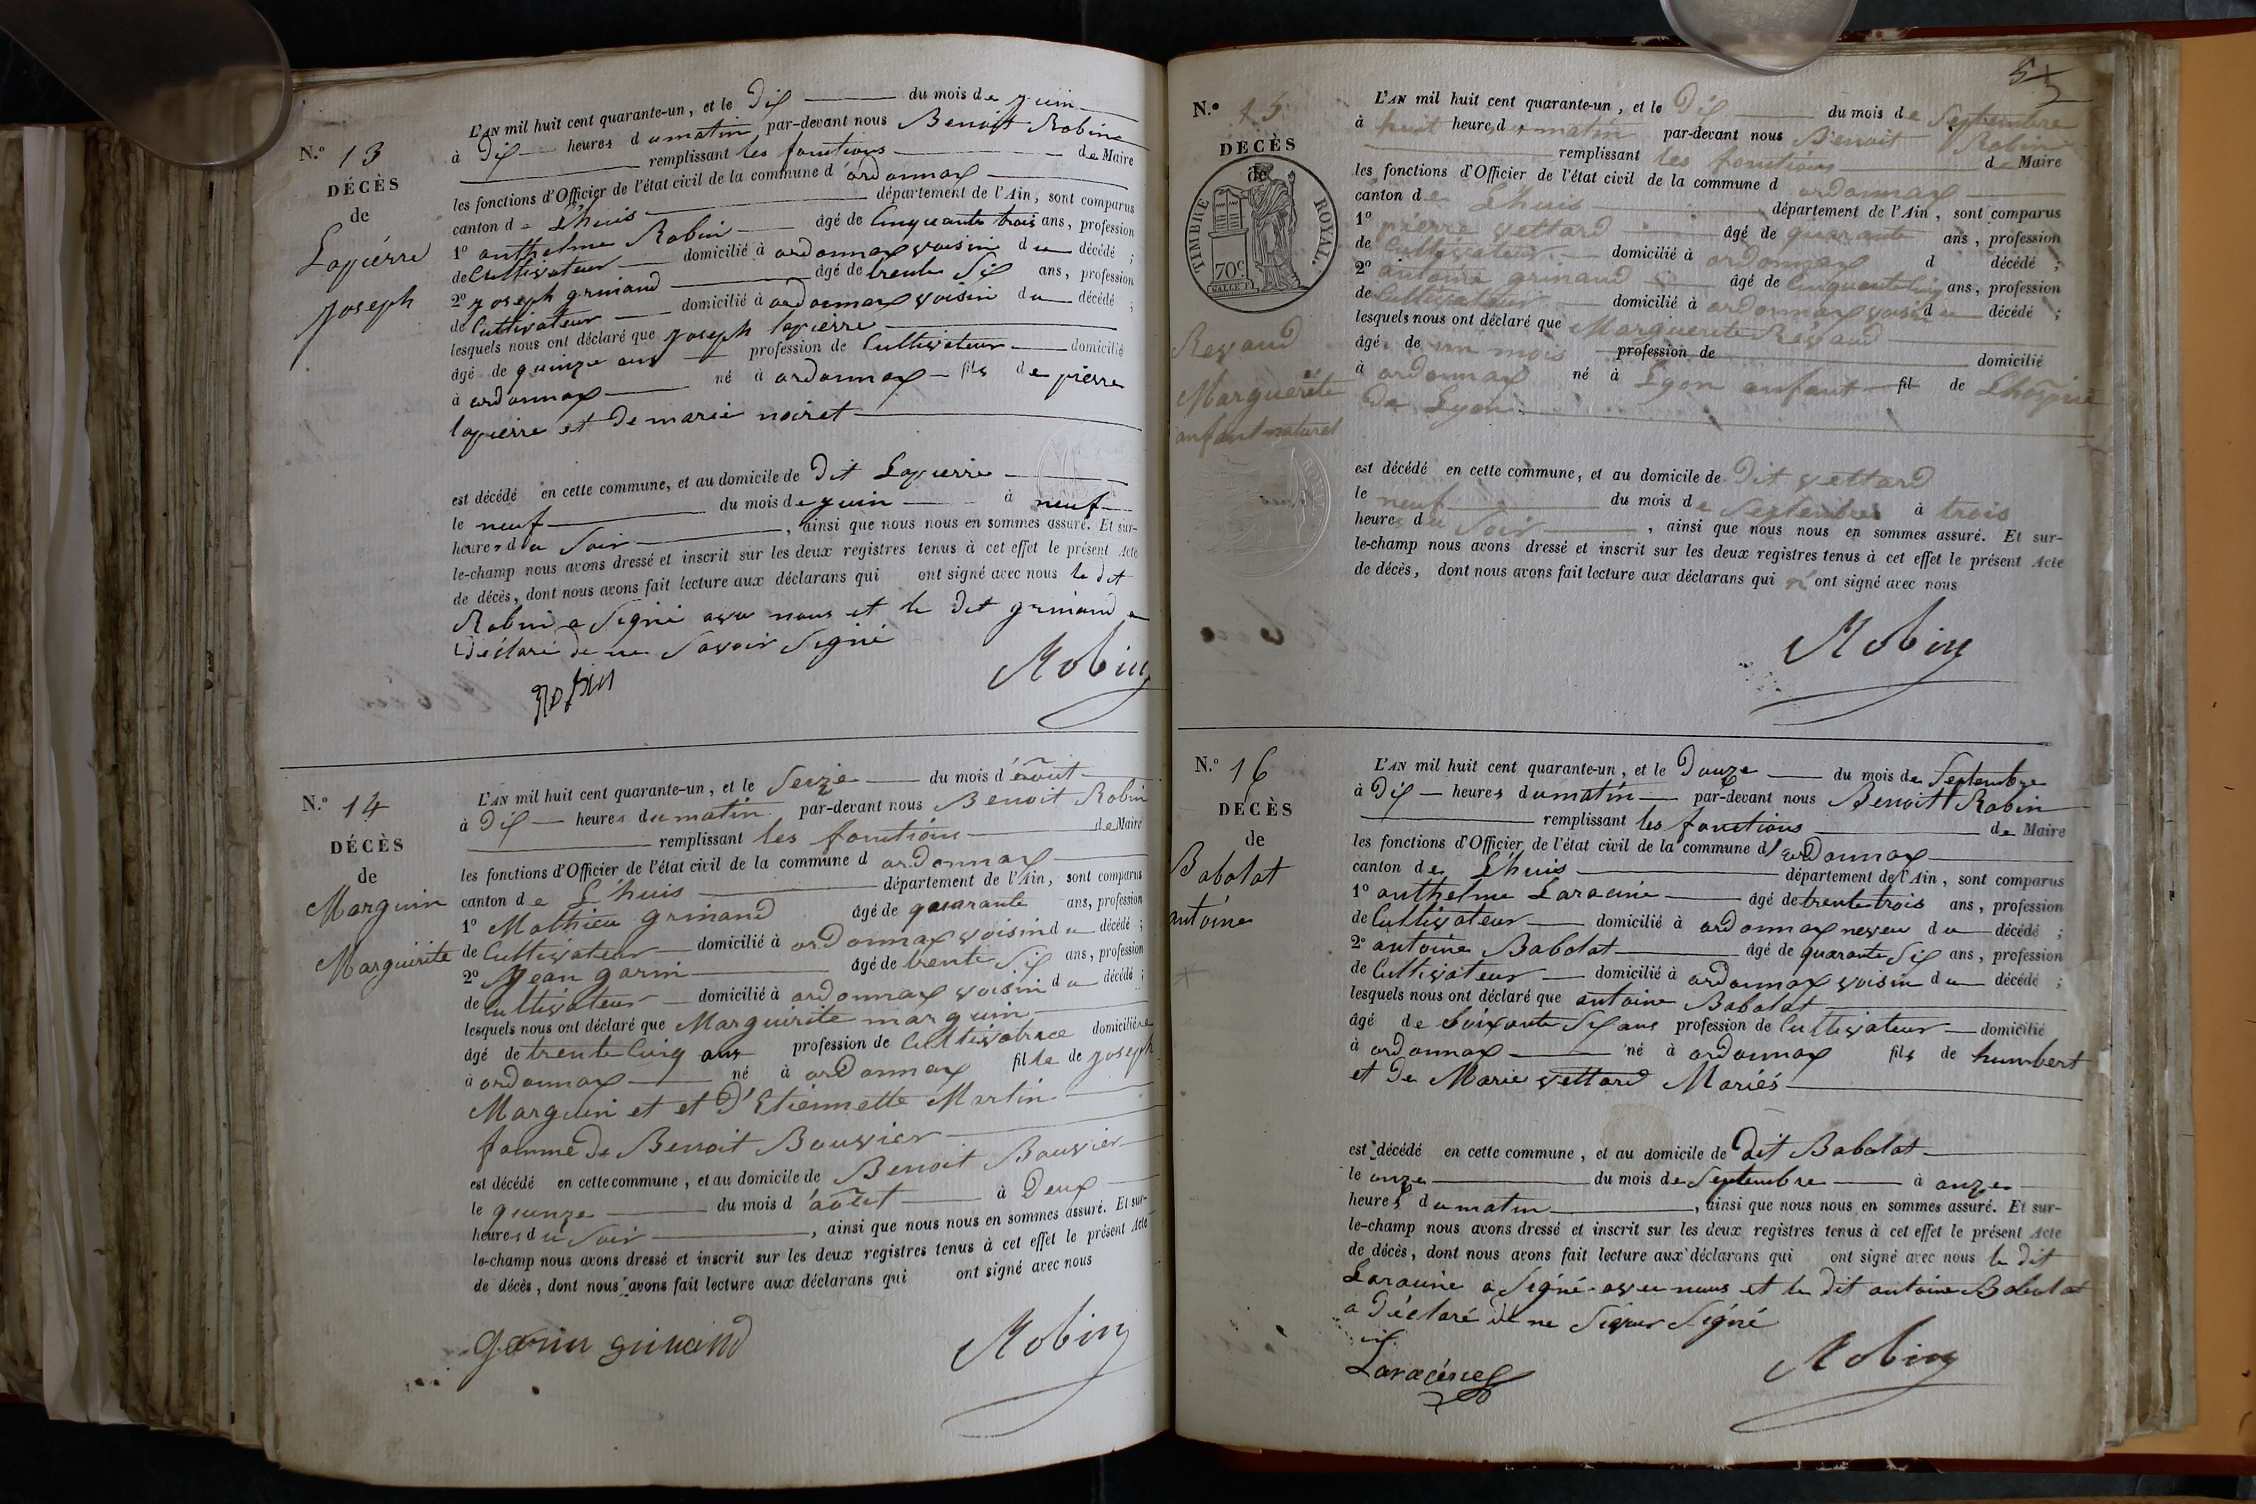 N.º 13
DÉCÈS
de
Lapièrre
Joseph
L'AN mil huit cent quarante-un, et le Dix du mois de juin
à Dix heures du matin par-devant nous Benoit Robin
remplissant les fonctions de Maire
les fonctions d'Officier de l'état civil de la commune d ordonnax
canton de L'huis département de l'Ain, sont comparus
1º anthelme Robin âgé de Cinquante trois ans, profession
de Cultivateur domicilié à ordonnax voisin du décédé ;
2º joseph grinand âgé de trente Six ans, profession
de Cultivateur domicilié à ordonnax voisin du décédé ;
lesquels nous ont déclaré que joseph lapièrre
âgé de quinze ans profession de Cultivateur domicilié
à ordonnax né à ordonnax fils de pierre
lapierre et de marie noiret
est décédé en cette commune, et au domicile de Dit Lapierre
le neuf du mois de juin à neuf
heures du Soir, ainsi que nous nous en sommes assuré. Et sur-
le-champ nous avons dressé et inscrit sur les deux registres tenus à cet effet le présent Acte
de décès, dont nous avons fait lecture aux déclarans qui ont signé avec nous le dit
Robin a Signé avec nous et le dit grinand a
Déclaré de ne Savoir Signé
Robin
Robin
N.º 14
DÉCÈS
de
Marguin
Marguirite
L'AN mil huit cent quarante-un, et le Seize du mois d'août
à Dix heures du matin par-devant nous Benoit Robin
remplissant les fonctions de Maire
les fonctions d'Officier de l'état civil de la commune d ordonnax
canton de L'huis département de l'Ain, sont comparus
1º Mathieu grinand âgé de quarante ans, profession
de Cultivateur domicilié à ordonnax voisin du décédé ;
2º Jean garin âgé de trente Six ans, profession
de Cultivateur domicilié à ordonnax voisin du décédé ;
lesquels nous ont déclaré que Marguirite marguin
âgé de trente Cinq ans profession de Cultivatrice domiciliée
à ordonnax né à ordonnax fille de joseph
Marguin et et D'Etiennette Martin
femme de Benoit Bouvier
est décédé en cette commune, et au domicile de Benoit Bouvier
le quinze du mois d'août à Deux
heures du Soir, ainsi que nous nous en sommes assuré. Et sur-
le-champ nous avons dressé et inscrit sur les deux registres tenus à cet effet le présent Acte
de décès, dont nous avons fait lecture aux déclarans qui ont signé avec nous
garin grinand
Robin
N.º 15
DÉCÈS
de
TIMBRE ROYAL.
70c
Revaud
Marguerite
enfant naturel
L'AN mil huit cent quarante-un, et le Dix du mois de Septembre
à huit heures du matin par-devant nous Benoit Robin
remplissant les fonctions de Maire
les fonctions d'Officier de l'état civil de la commune d ordonnax
canton de L'huis département de l'Ain, sont comparus
1º pierre vettard âgé de quarante ans, profession
de Cultivateur domicilié à ordonnax d décédé ;
2º antoine grinand âgé de Cinquante cinq ans, profession
de Cultivateur domicilié à ordonnax voisin du décédé ;
lesquels nous ont déclaré que Marguerite Révaud
âgé de un mois profession de domicilié
à ordonnax né à Lyon enfant fil de Lhospice
De Lyon
est décédé en cette commune, et au domicile de Dit vettard
le neuf du mois de Septembre à trois
heures du Soir, ainsi que nous nous en sommes assuré. Et sur-
le-champ nous avons dressé et inscrit sur les deux registres tenus à cet effet le présent Acte
de décès, dont nous avons fait lecture aux déclarans qui n'ont signé avec nous
Robin
N.º 16
DÉCÈS
de
Babolat
antoine
L'AN mil huit cent quarante-un, et le Douze du mois de Septembre
à Dix heures du matin par-devant nous Benoit Robin
remplissant les fonctions de Maire
les fonctions d'Officier de l'état civil de la commune d'ordonnax
canton de L'huis département de l'Ain, sont comparus
1º anthelme Laracine âgé de trente trois ans, profession
de Cultivateur domicilié à ordonnax neveu du décédé ;
2º antoine Babolat âgé de quarante Six ans, profession
de Cultivateur domicilié à ordonnax voisin du décédé ;
lesquels nous ont déclaré que antoine Babolat
âgé de Soixante Six ans profession de Cultivateur domicilié
à ordonnax né à ordonnax fils de humbert
et de Marie vettard Mariés
est décédé en cette commune, et au domicile de dit Babolat
le onze du mois de Septembre à onze
heures du matin, ainsi que nous nous en sommes assuré. Et sur-
le-champ nous avons dressé et inscrit sur les deux registres tenus à cet effet le présent Acte
de décès, dont nous avons fait lecture aux déclarans qui ont signé avec nous le dit
Laracine a Signé avec nous et le dit antoine Babolat
a Déclaré de ne Signé
Laracine
Robin